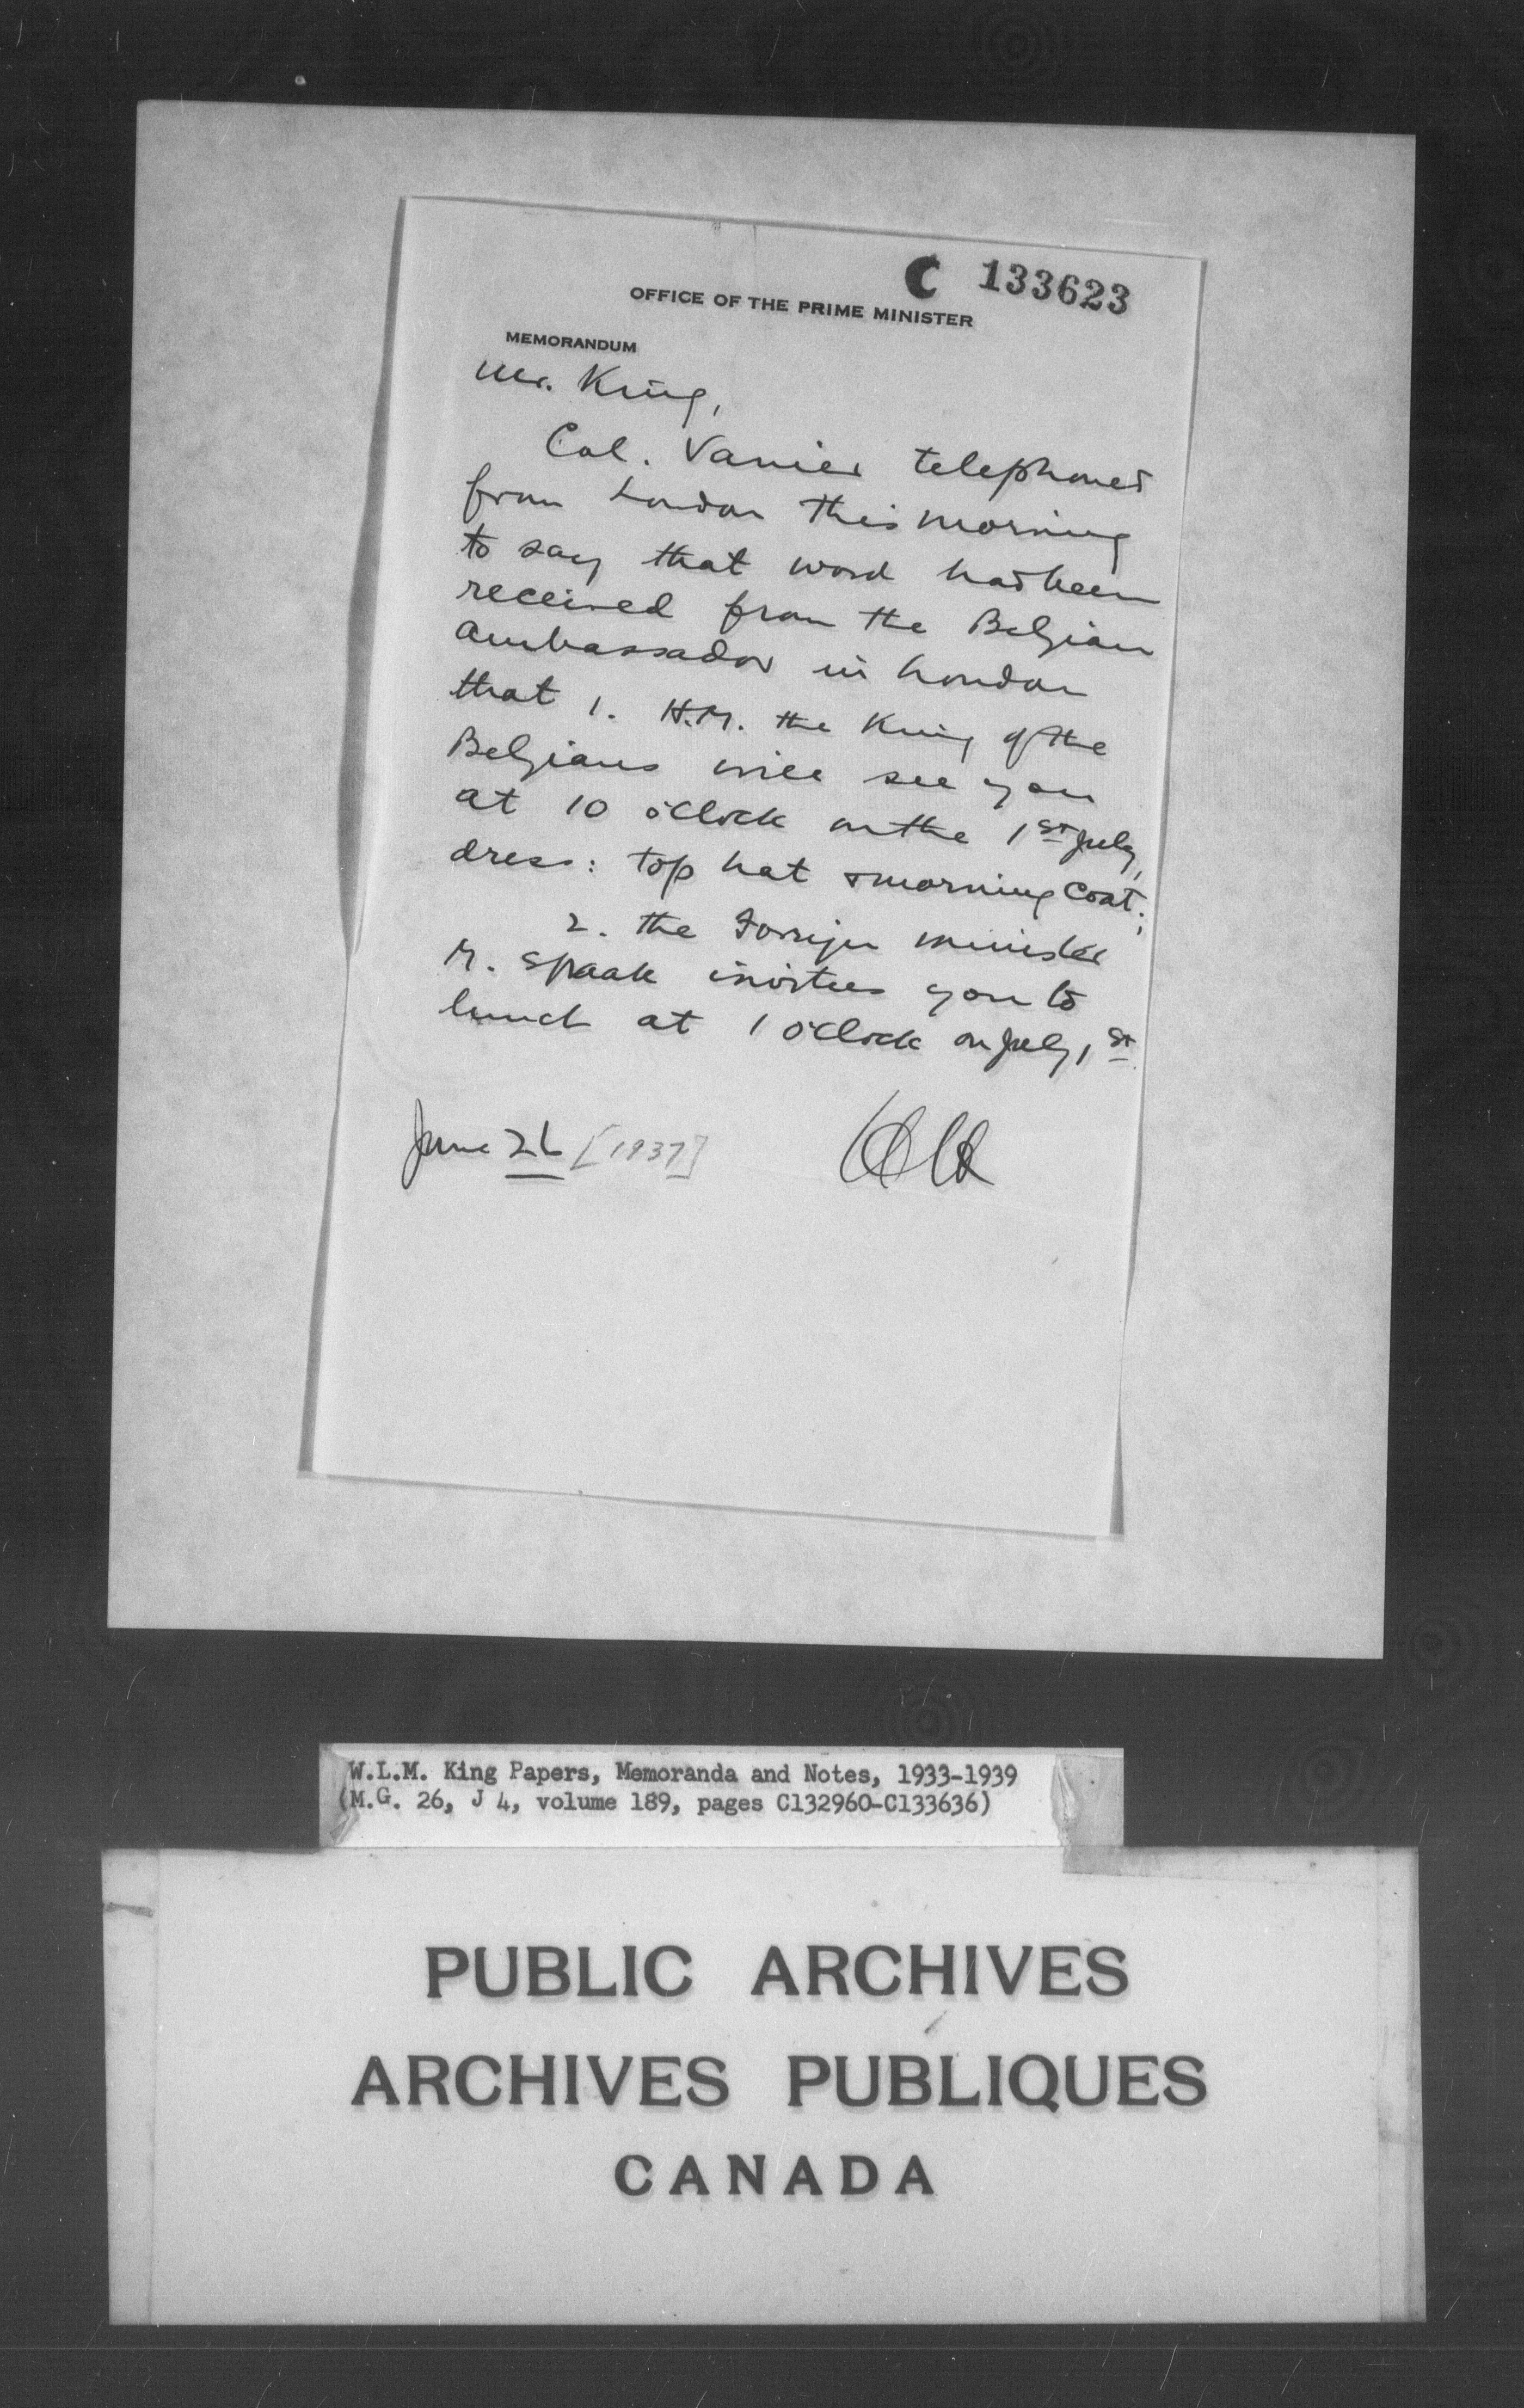 C 133623
OFFICE OF THE PRIME MINISTER
MEMORANDUM
Mr. King,
Col. Vanier telephoned
from London this morning
to say that word had been
received from the Belgian
Ambassador in London
that 1. H.M. the King of the
Belgians will see you
at 10 o'clock on the 1st July,
dress: top hat & morning coat;
2. the Foreign Minister
M. Spaak invites you to
lunch at 1 o'clock on July 1st.
June 26 [1937]
W.L.M. King Papers, Memoranda and Notes, 1933-1939
(M.G. 26, J 4, volume 189, pages C132960-C133636)
PUBLIC ARCHIVES
ARCHIVES PUBLIQUES
CANADA